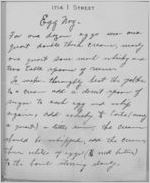 1734 I STREET
Egg Nog.
For one dozen eggs use one
quart double thick cream, nearly
one quart good malt whisky and
two table spoons of rum
To make thoroughly beat the yolks
to a cream add a desert spoon of
sugar to each egg and whip
again, add whisky
a quart) a little rum, the cream
should be whipped, add the cream
then whites of eggs
to the bowl